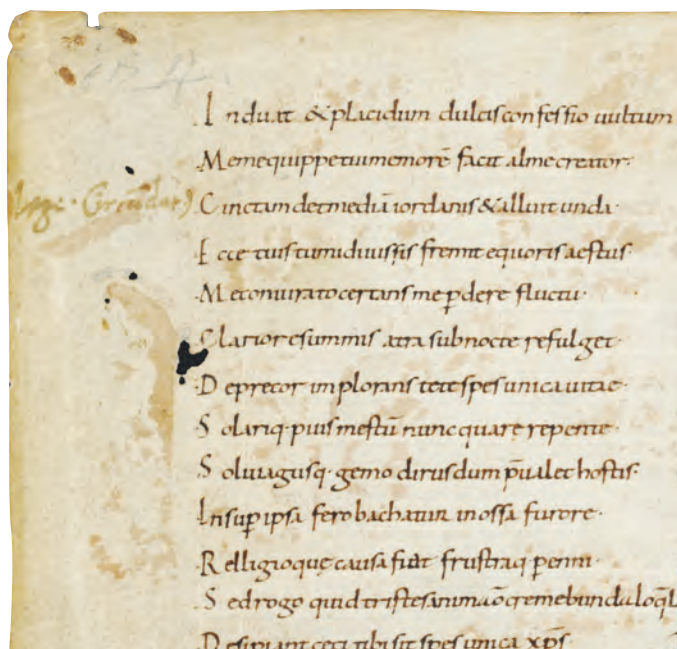 Induat & placidum dulcis confessio uultum
Me nequippe tui memorē facit alme creator·
lege· Circūdat) Cinctam det mediā iordanis & alluit unda·
Ecce tuis tumidi iussis fremit equoris aestus·
Meconiurato certans me ꝑdere fluctu·
Clarior esummis atra subnocte refulget·
Deprecor implorans te te spes unica uitae·
Solariq· pius mestū nunc quare repente·
Soliuagusq· gemo dirus dum p̄ualet hostis·
Insuꝑ ipsa fero bachatur in ossa furore·
Relligioquę causa fuit frustraq ꝑenni·
Sed rogo quid tristes anima ō gemebunda loq̄l
Desipiant ceci tibi sit spes unica xp̄s·